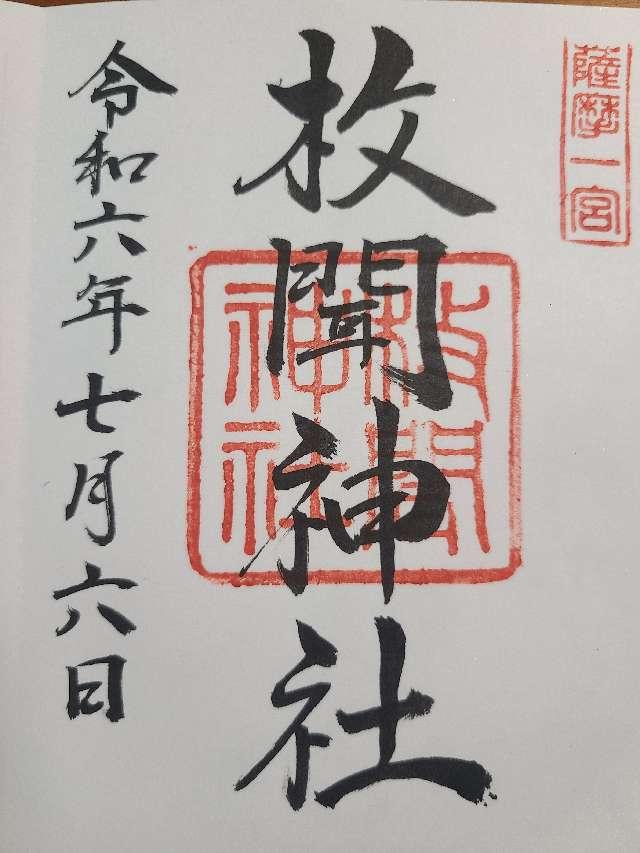 薩摩一宮
枚聞神社
枚聞神社
令和六年七月六日